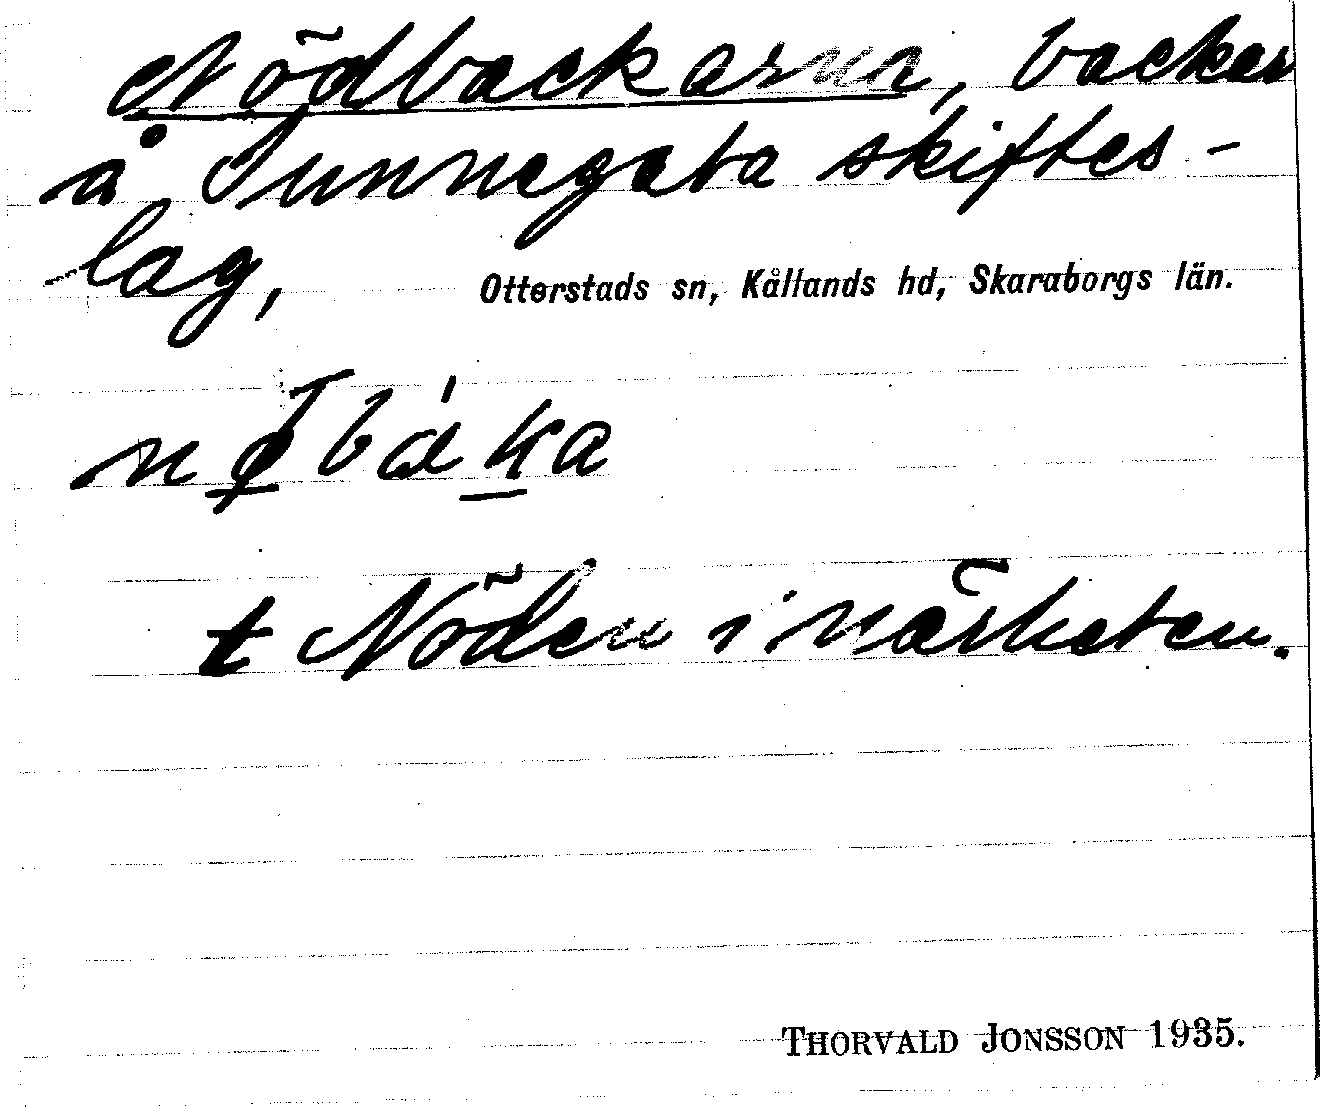 Nödbackarna, backar
å Tunnegata skiftes-
lag,
Otterstads sn, Kållands hd, Skaraborgs län.
t Nöden i närheten.
THORVALD JONSSON 1935.